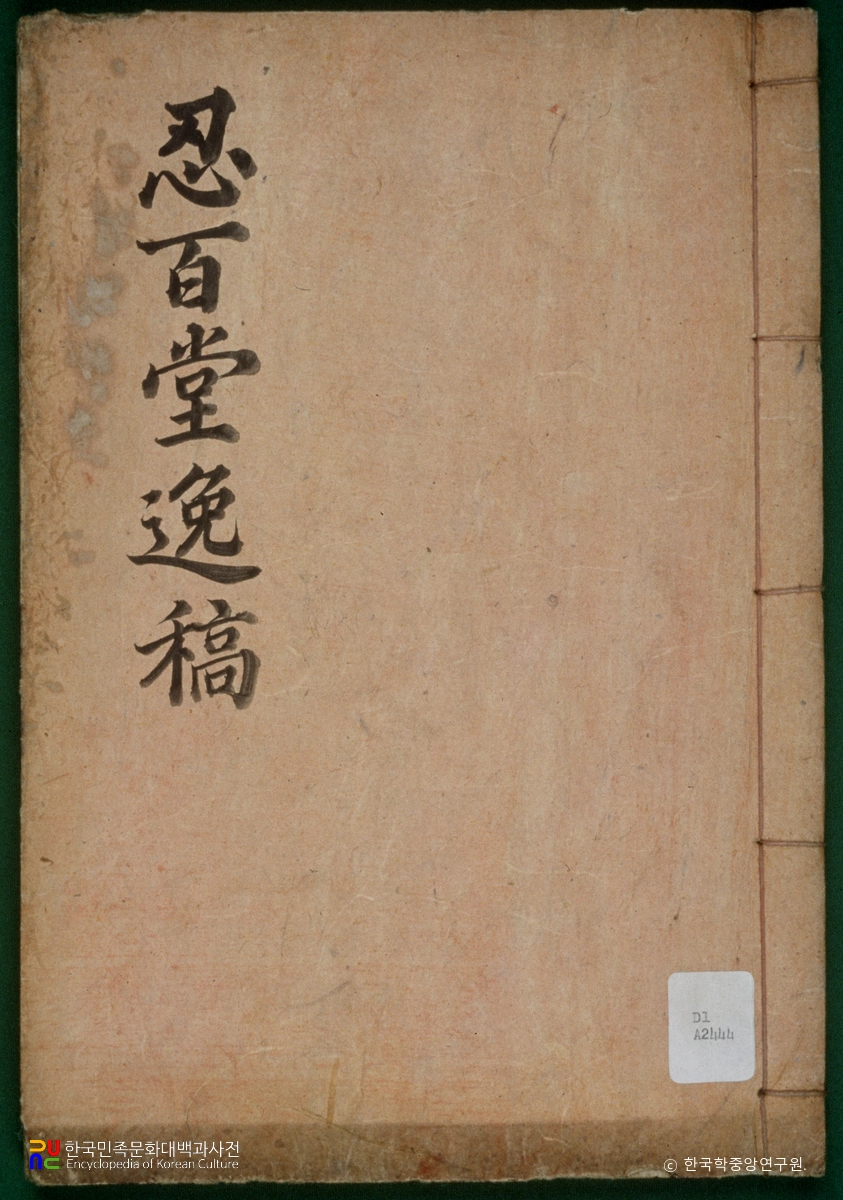 忍百堂逸稿
D1
A2444
한국민족문화대백과사전
Encyclopedia of Korean Culture
© 한국학중앙연구원